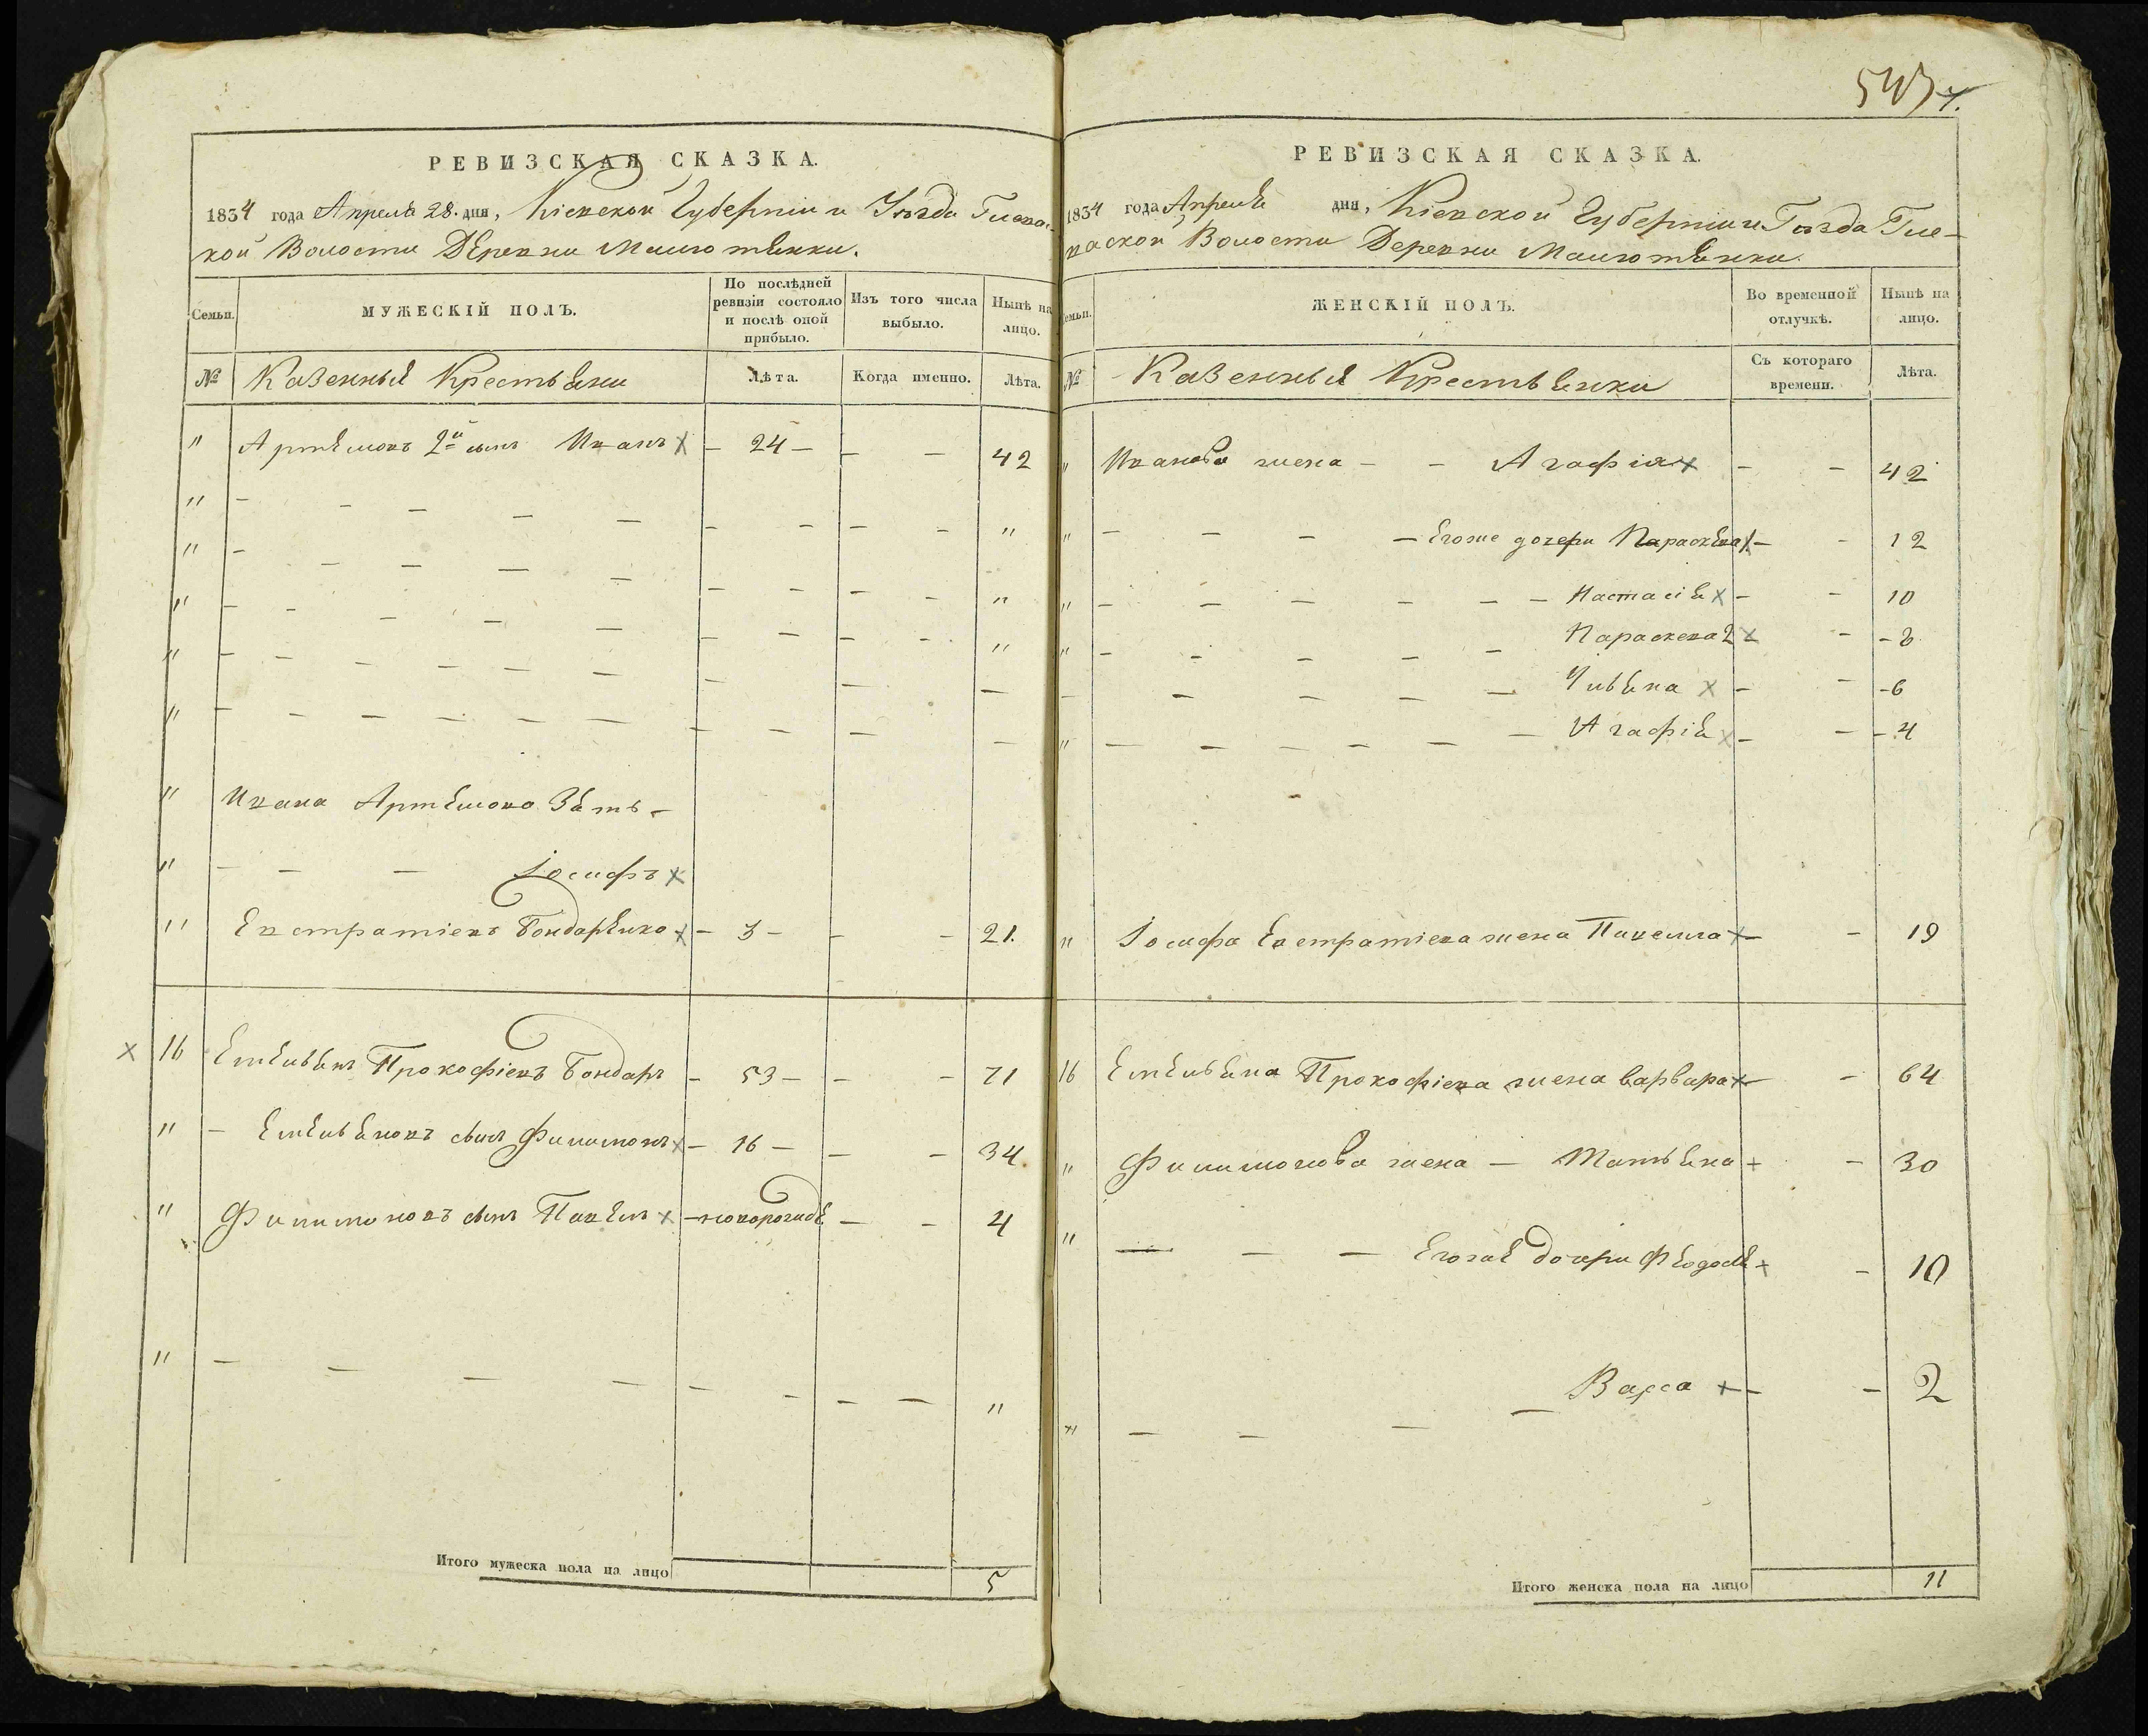 543 7.
РЕВИЗСКАЯ СКАЗКА.
1834 года Апреля 28. дня, Кіевской Губерніи и Уѣзда Глева-
кой Волости Деревни Малютянки.
Семьи.
МУЖЕСКІЙ ПОЛЪ.
По послѣдней ревизіи состояло и послѣ оной прибыло.
Изъ того числа выбыло.
Нынѣ на лицо.
№ Казенныя Крестьяни Лѣта. Когда именно. Лѣта.
" Артемовъ 2й сынъ Иванъ х – 24 – – – 42
" – – – – – – – – – "
" – – – – – – – – – "
" – – – – – – – – – "
" – – – – – – – – –
" – – – – – – – – – –
" Ивана Артемова Зять –
" – – – Іосифъ х
" Евстратіевъ Бондаренко х – 3 – – – 21.
х 16 Емельянъ Прокофіевъ Бондарь – 53 – – – 71
" – Емельяновъ сынъ Филимонъ х – 16 – – – 34.
" Филимоновъ сынъ Павелъ х – новорожде – – 4
" – – – – – – – – "
Итого мужеска пола на лицо 5
РЕВИЗСКАЯ СКАЗКА.
1834 года Апреля дня, Кіевской Губерніи и Уѣзда Гле-
васкои Волости Деревни Малютянки.
Семьи.
ЖЕНСКІЙ ПОЛЪ.
Во временной отлучкѣ.
Нынѣ на лицо.
№ Казенныя Крестьянки Съ котораго времени. Лѣта.
" Иванова жена – – Агафія х – – 42
" – – – – Егоже дочери Параскева 1. х – – 12
" – – – – – – Настасія х – – 10
" – – – – – Параскева 2 х – – 8
– – – – – Ульяна х – – – 6
" – – – – – – Агафія х – – – 4
" Іосифа Евстратіева жена Пелагея х – – 19
16 Емельяна Прокофіева жена Варвара х – – 64
" Филимонова жена – Татьяна + – 30
" – – – Егоже дочери Феодосія х – 10
" – – – – Васса + – – 2
Итого женска пола на лицо 11